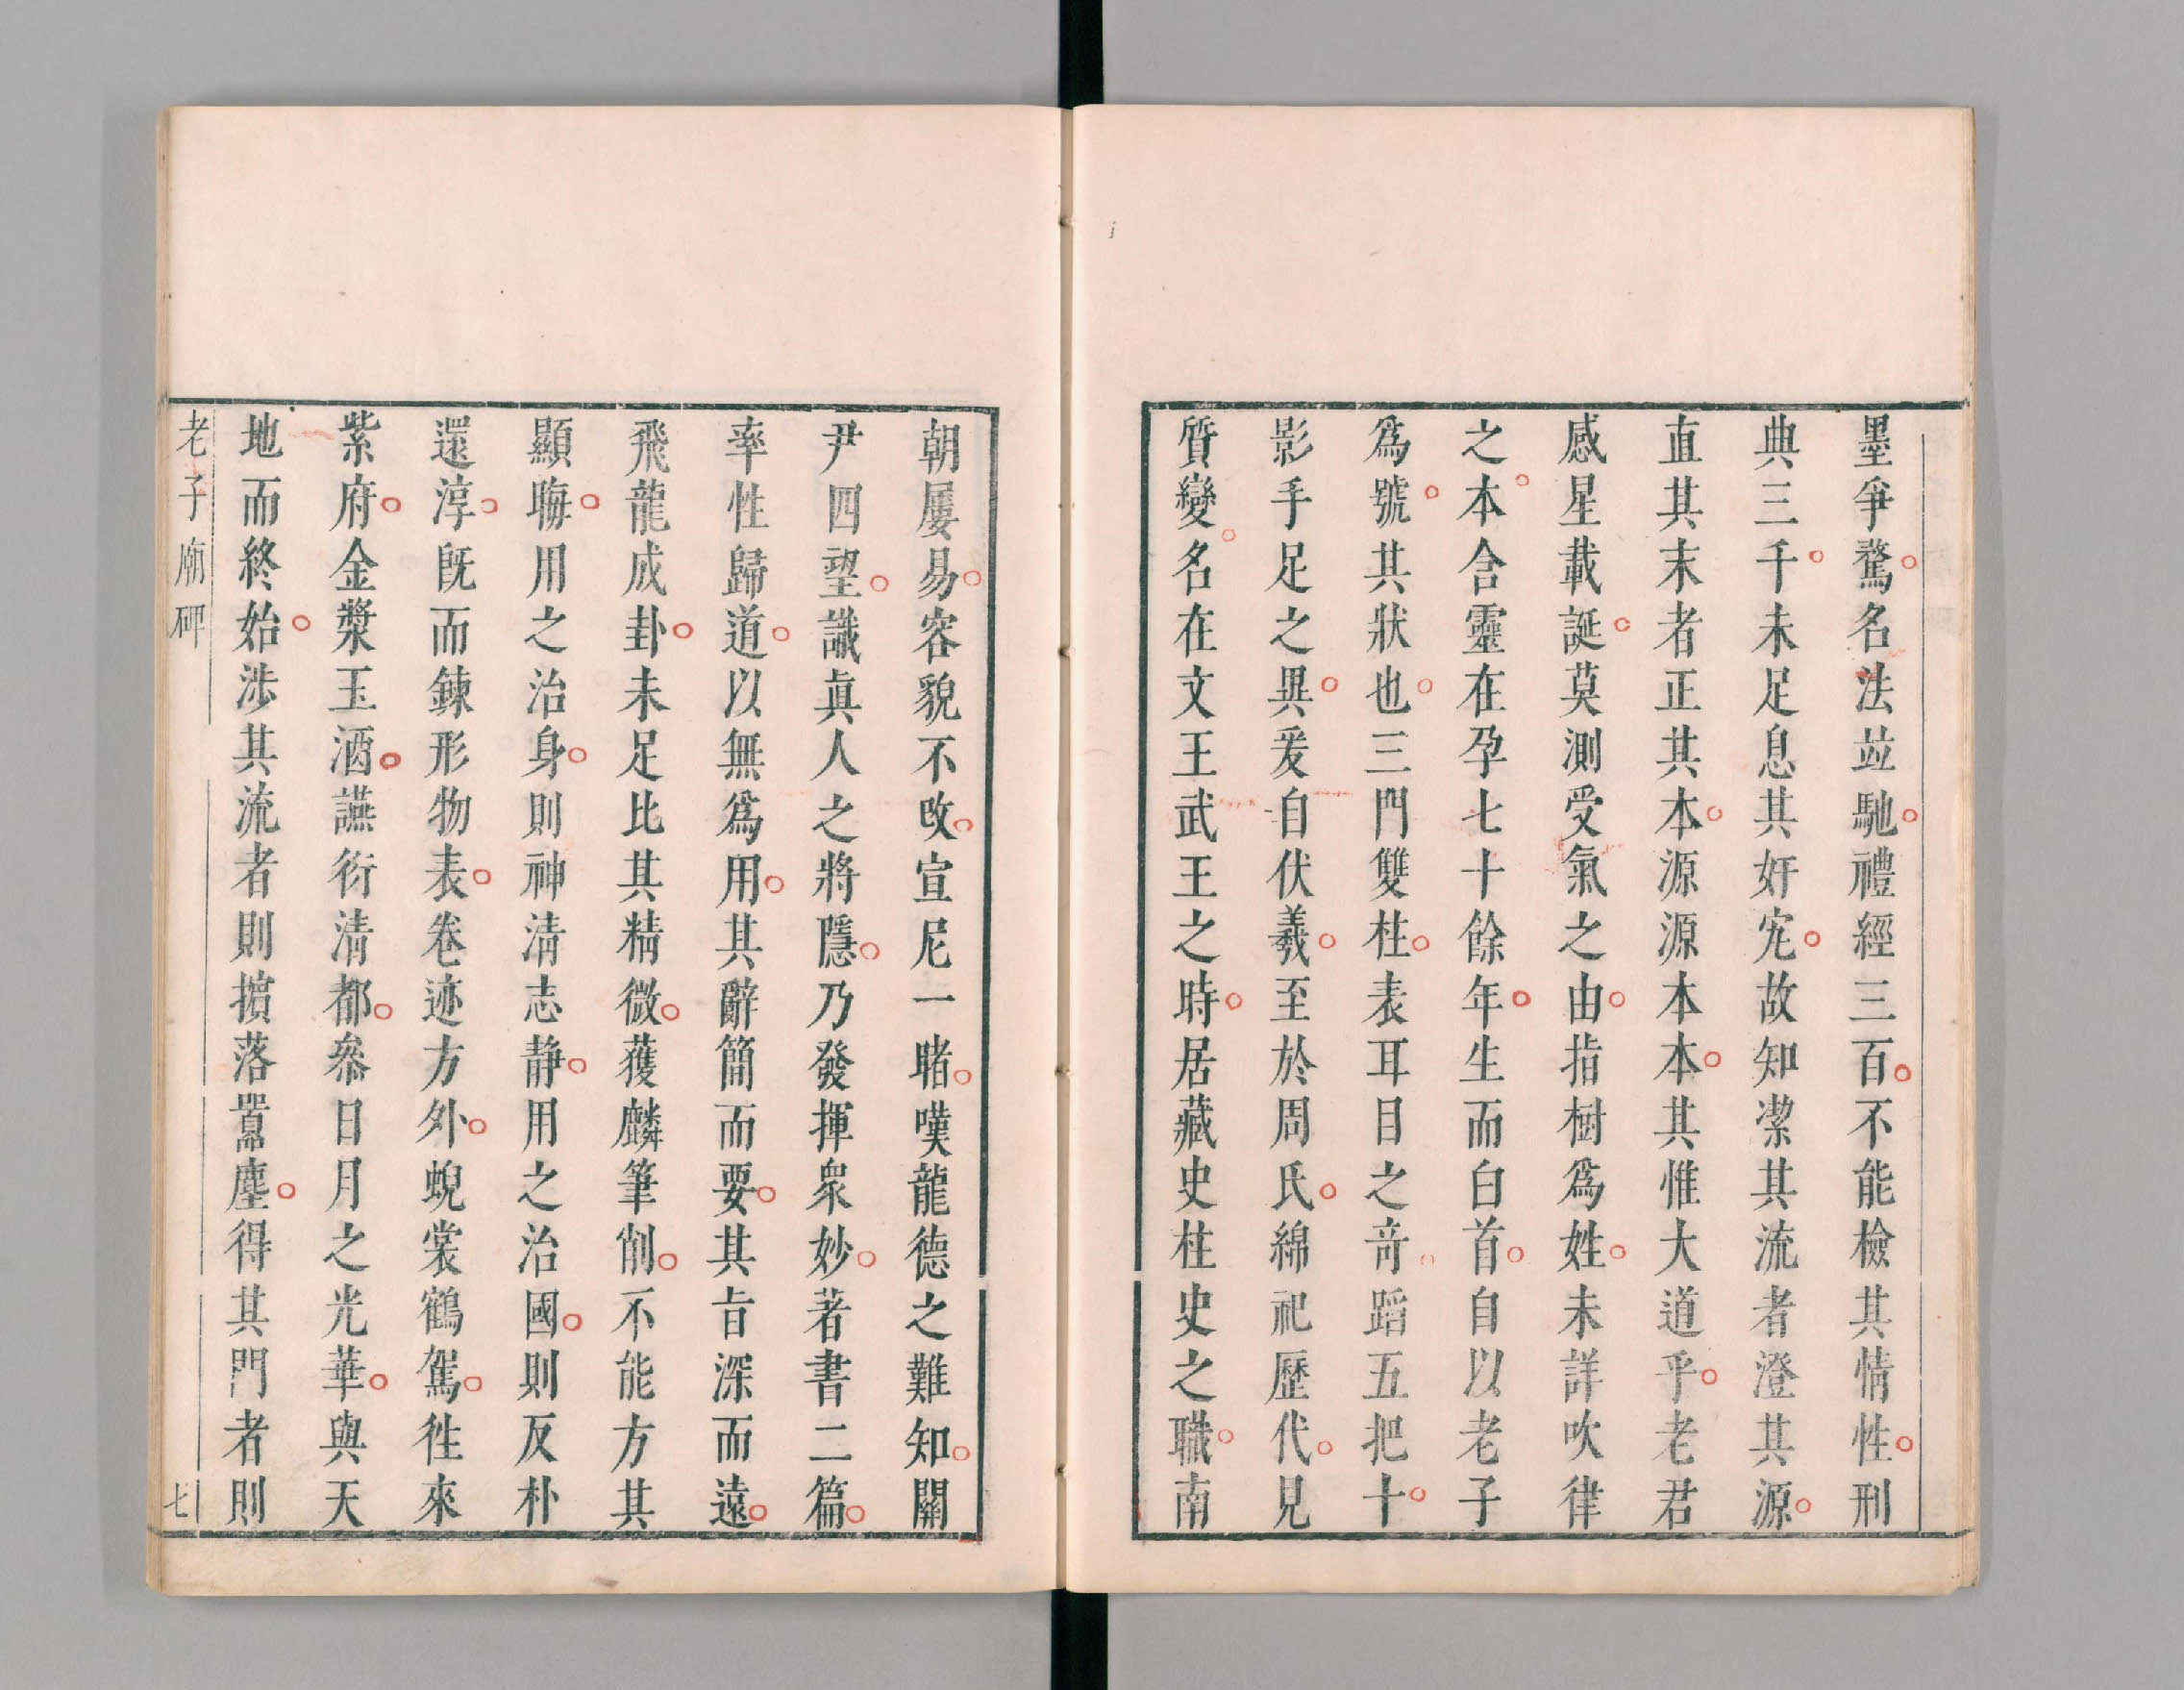 墨爭騖名法竝馳禮經三百不能檢其情性刑
典三千未足息其奸宄故知潔其流者澄其源
直其末者正其本源源本本其惟大道乎老君
感星載誕莫測受氣之由指樹爲姓未詳吹律
之本含靈在孕七十餘年生而白首自以老子
爲號其狀也三門雙柱表耳目之竒蹈五把十
影手足之異爰自伏羲至於周氏綿祀歷代見
質變名在文王武王之時居藏史柱史之職南
朝屢易容貌不攺宣尼一睹嘆龍德之難知關
尹四望識眞人之將隱乃發揮衆妙著書二篇
率性歸道以無爲用其辭簡而要其旨深而遠
飛龍成卦未足比其精微獲麟筆削不能方其
顯晦用之治身則神清志静用之治國則反朴
還淳旣而鍊形物表卷迹方外蜺裳鶴駕徃來
紫府金漿玉酒讌衎清都叅日月之光華與天
地而終始涉其流者則擯落囂塵得其門者則
老子廟碑
七